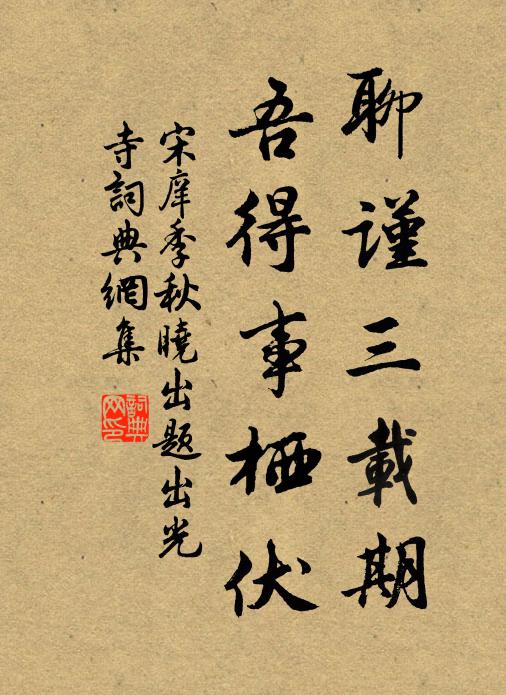 聊謹三載期
吾得事栖伏
宋庠季秋曉出題出光
寺詞典網集
詞典
网印